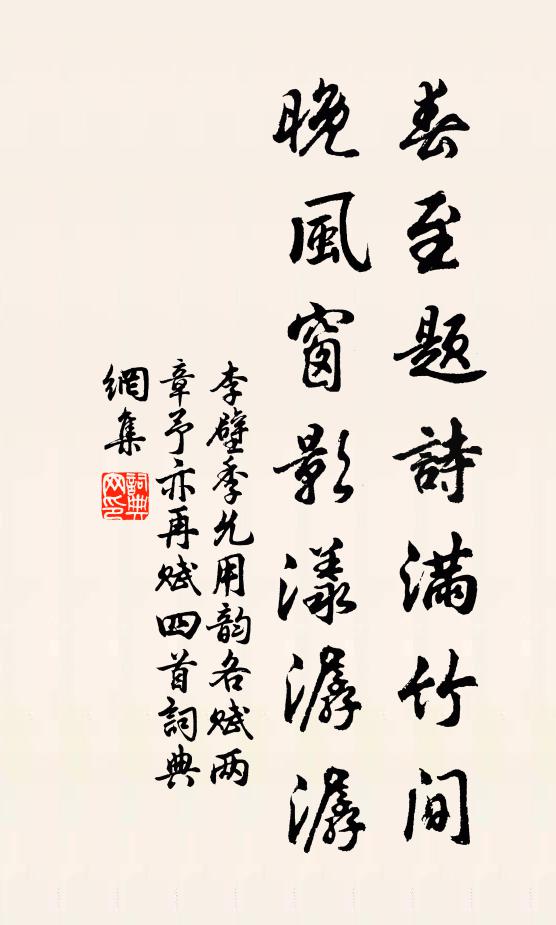 春至題詩滿竹间
晚風窗影漾潺潺
李壁季允用韵各赋两
章予亦再赋四首詞典
網集
詞典
网印